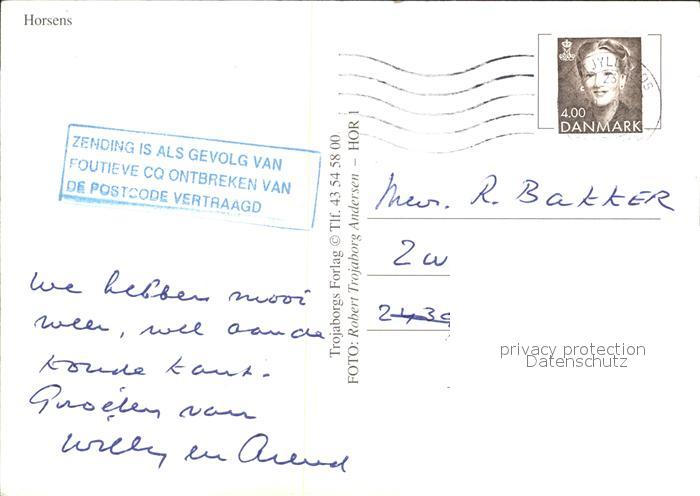 Horsens
4.00
DANMARK
ZENDING IS ALS GEVOLG VAN
FOUTIEVE CQ ONTBREKEN VAN
DE POSTCODE VERTRAAGD
Trojaborgs Forlag © Tlf. 43 54 58 00
FOTO: Robert Trojaborg Andersen – HOR 1
Mevr. R. BAKKER
Zw
privacy protection
Datenschutz
We hebben mooi
weer, wel aan de
koude kant.
Groeten van
Willy en Arend